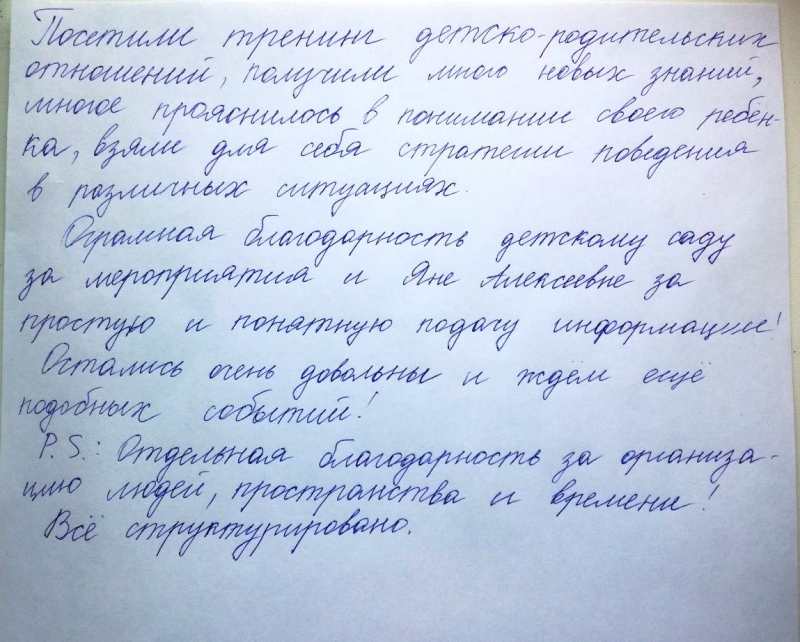 Посетили тренинг детско-родительских
отношений, получили много новых знаний,
многое прояснилось в понимании своего ребён-
ка, взяли для себя стратегии поведения
в различных ситуациях.
Огромная благодарность детскому саду
за мероприятия и Яне Алексеевне за
простую и понятную подачу информации!
Остались очень довольны и ждём ещё
подобных событий!
P.S.: Отдельная благодарность за организа-
цию людей, пространства и времени!
Всё структурировано.